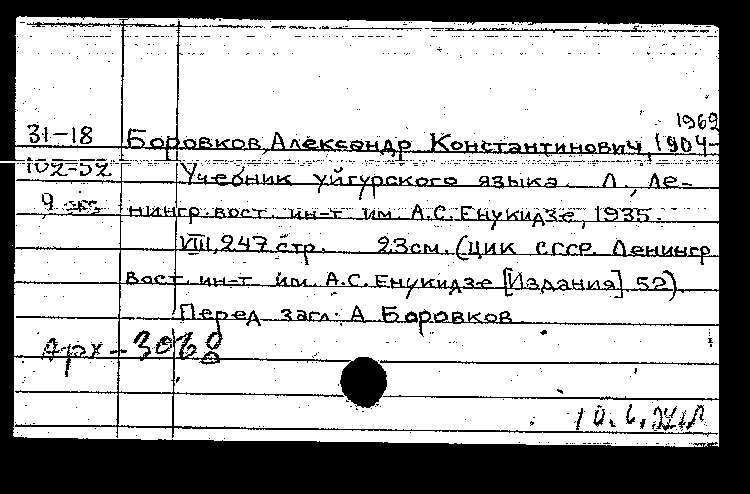 1962
31-18 Боровков, Александр Константинович, 1904-
102-52 Учебник уйгурского языка. Л., Ле-
9 экз. нингр. вост. ин-т им. А.С. Енукидзе, 1935.
VIII, 247 стр. 23см. (ЦИК СССР. Ленингр
вост. ин-т им. А.С. Енукидзе [Издания] 52).
Перед загл: А Боровков
Арх-3068